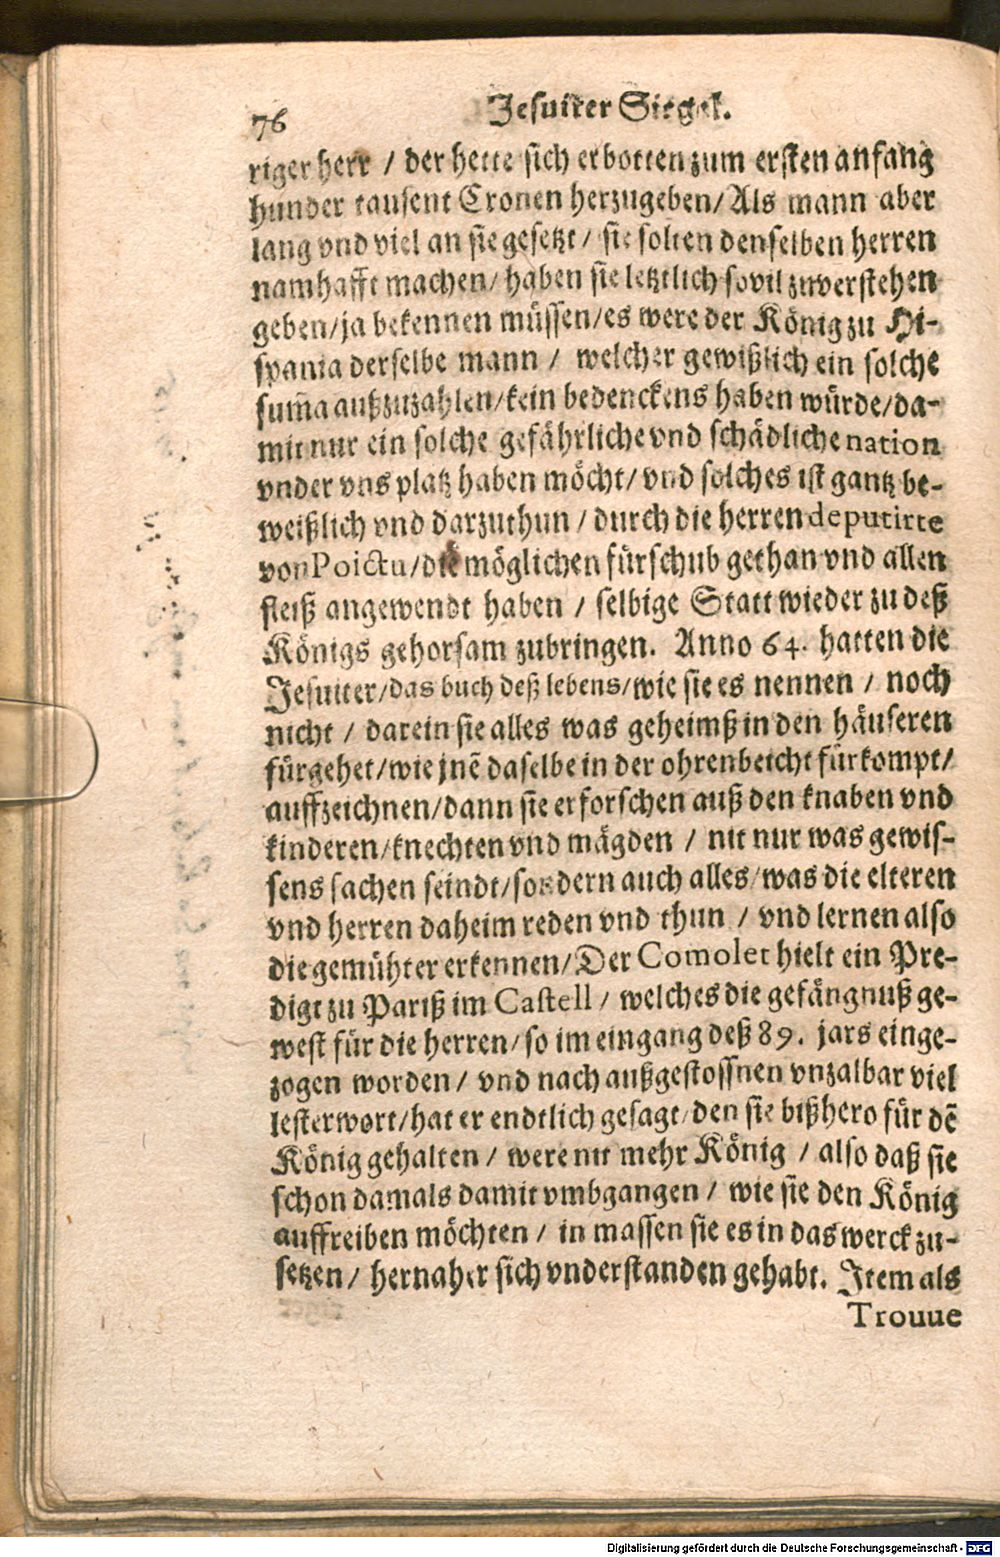 76
Jesuiter Siegel.
riger herr / der hette sich erbotten zum ersten anfang
hunder tausent Cronen herzugeben/ Als mann aber
lang vnd viel an sie gesetzt / sie solten denselben herren
namhafft machen/ haben sie letztlich sovil zuverstehen
geben/ja bekennen müssen/es were der König zu Hi-
spania derselbe mann / welcher gewißlich ein solche
sum̃a außzuzahlen/kein bedenckens haben würde/da-
mit nur ein solche gefährliche vnd schädliche nation
vnder vns platz haben möcht/ vnd solches ist gantz be-
weißlich vnd darzuthun / durch die herren deputirte
von Poictu/die möglichen fürschub gethan vnd allen
fleiß angewendt haben / selbige Statt wieder zu deß
Königs gehorsam zubringen. Anno 64. hatten die
Jesuiter/das buch deß lebens/wie sie es nennen / noch
nicht / darein sie alles was geheimß in den häuseren
fürgehet/wie jnẽ daselbe in der ohrenbeicht fürkompt/
auffzeichnen/dann sie erforschen auß den knaben vnd
kinderen/knechten vnd mägden / nit nur was gewis-
sens sachen seindt/sondern auch alles/was die elteren
vnd herren daheim reden vnd thun / vnd lernen also
die gemühter erkennen/Der Comolet hielt ein Pre-
digt zu Pariß im Castell / welches die gefängnuß ge-
west für die herren/so im eingang deß 89. jars einge-
zogen worden / vnd nach außgestossnen vnzalbar viel
lesterwort/hat er endtlich gesagt/den sie bißhero für dẽ
König gehalten / were nit mehr König / also daß sie
schon damals damit vmbgangen / wie sie den König
auffreiben möchten / in massen sie es in das werck zu-
setzen / hernaher sich vnderstanden gehabt. Item als
Trouue
Digitalisierung gefördert durch die Deutsche Forschungsgemeinschaft - DFG